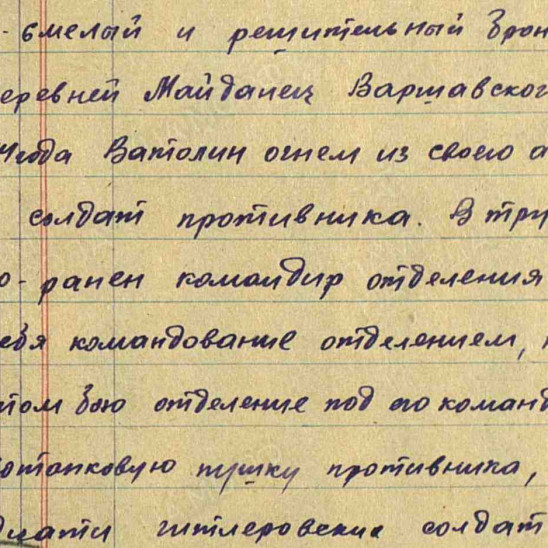 - смелый и решительный врон
еревней Майданец Варшавског
Чгода Ватолин огнем из своего а
солдат противника. В тру
о-ранен командир отделения
ебя командование отделением,
том бою отделение под его команд
отопковую пушку противника,
дцати гитлеровских солдат